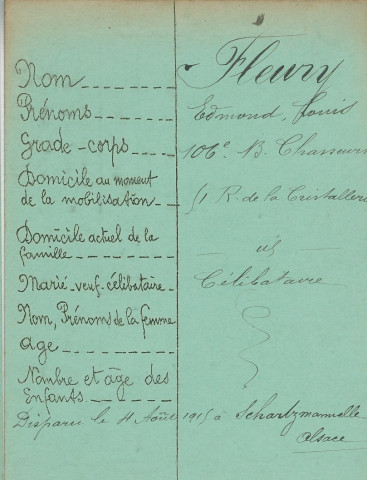 Nom Fleury
Prénoms Edmond, Louis
Grade-corps 106e B. Chasseurs
Domicile au moment
de la mobilisation 51 R. de la Cristallerie
Domicile actuel de la
famille id
Marié-veuf-célibataire Célibataire
Nom, Prénoms de la femme
age
Nombre et âge des
Enfants
Disparu le 4 Août 1915 à Schartzmannelle
Alsace